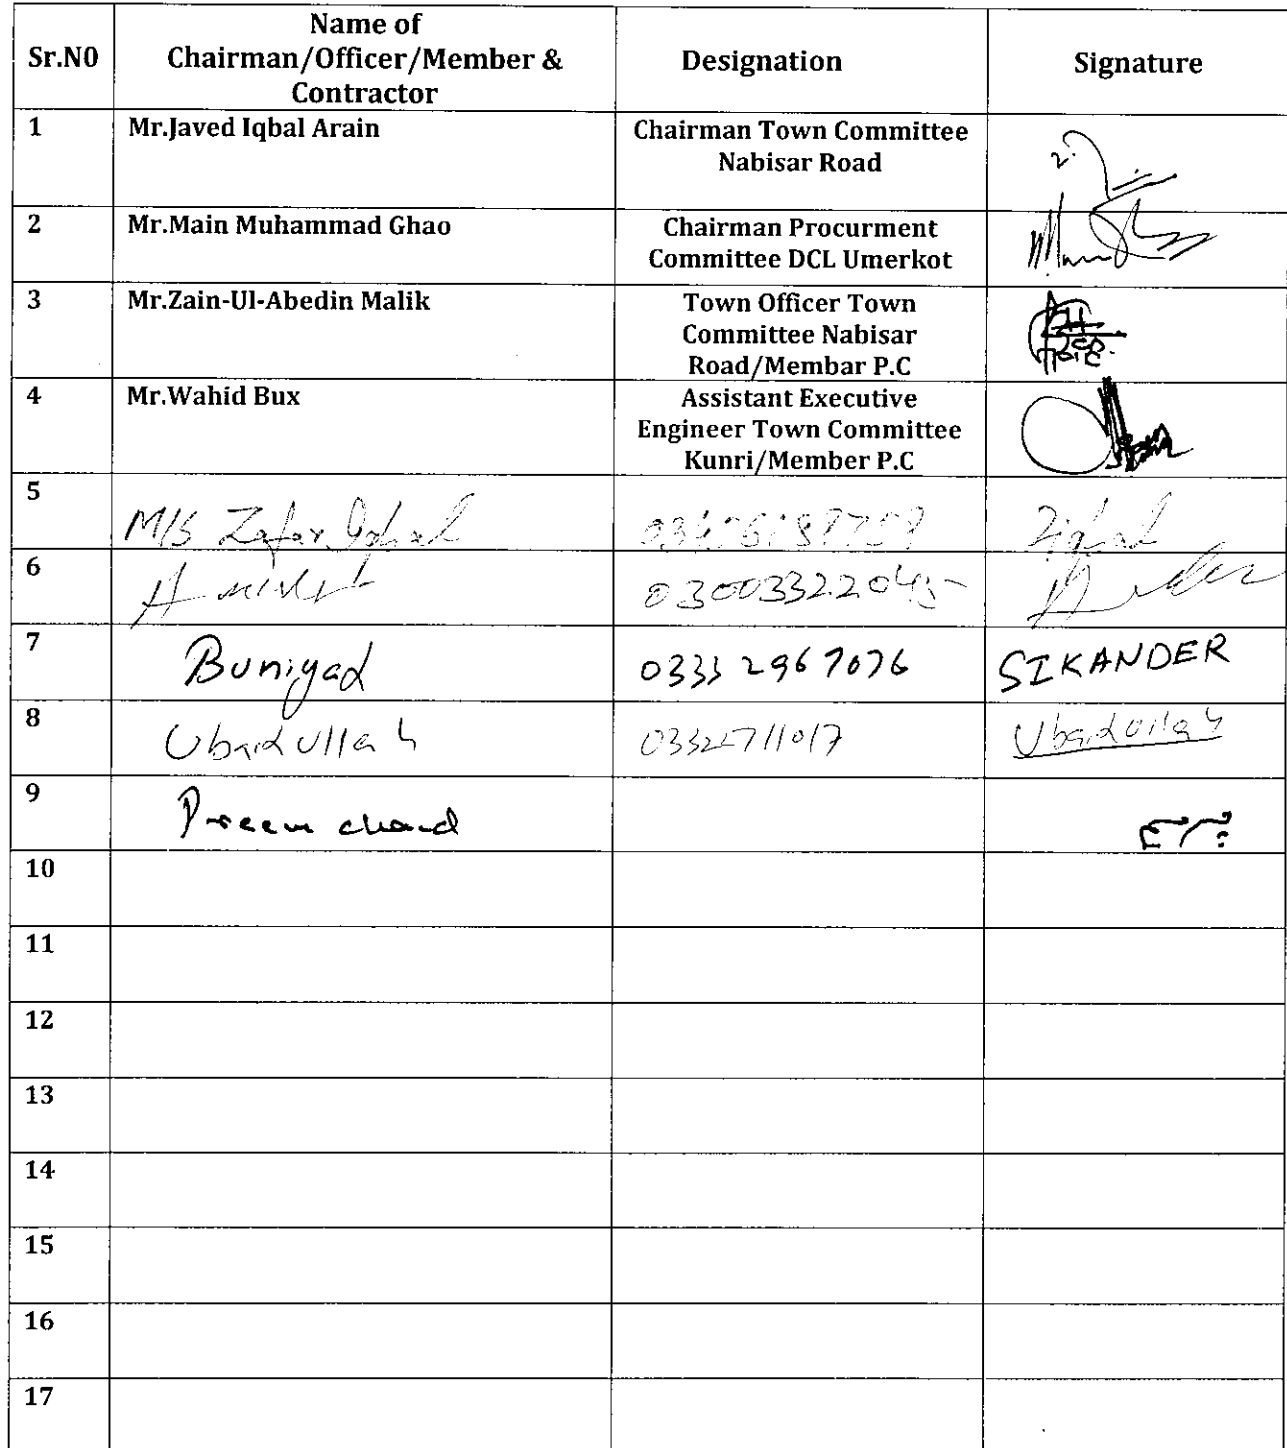 Sr.N0
Name of
Chairman/Officer/Member &
Contractor
Designation
Signature
1
Mr.Javed Iqbal Arain
Chairman Town Committee
Nabisar Road
2
Mr.Main Muhammad Ghao
Chairman Procurment
Committee DCL Umerkot
3
Mr.Zain-Ul-Abedin Malik
Town Officer Town
Committee Nabisar
Road/Membar P.C
4
Mr.Wahid Bux
Assistant Executive
Engineer Town Committee
Kunri/Member P.C
5
M/S Zafar Iqbal
Ziqbal
6
7
Buniyad
0333 2967076
SIKANDER
8
Ubaidullah
03322711017
Ubaidullah
9
Preem chand
10
11
12
13
14
15
16
17